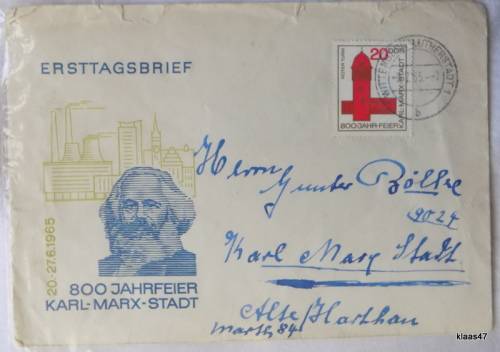 ERSTTAGSBRIEF
20 DDR
ROTER TURM
KARL-MARX-STADT
800 JAHR-FEIER
20.-27.6.1965
800 JAHRFEIER
KARL-MARX-STADT
Herrn
Gunter Böttke
9024
Karl Marx Stadt
Alte Harthau
84
klaas47